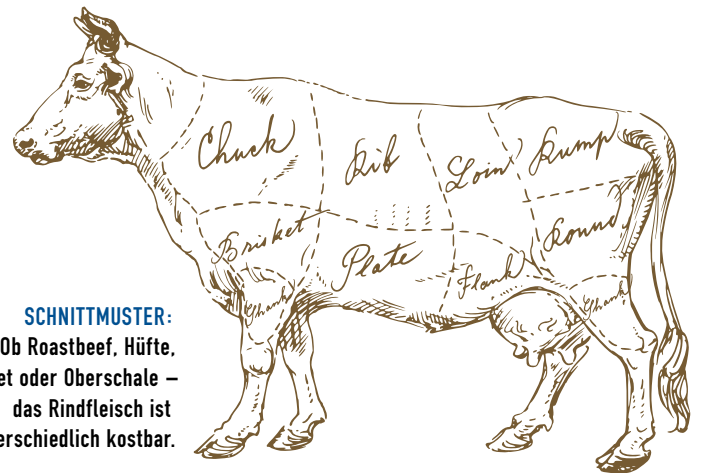 Chuck
Rib
Loin
Rump
Brisket
Plate
Flank
Round
Shank
Shank
SCHNITTMUSTER:
Ob Roastbeef, Hüfte,
oder Oberschale –
das Rindfleisch ist
kostbar.